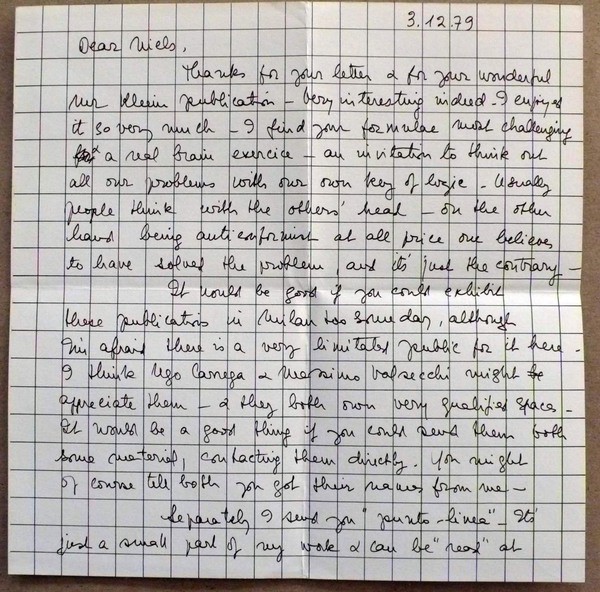 3.12.79
Dear Niels,
Thanks for your letter & for your wonderful
mr Klein publication - Very interesting indeed - I enjoyed
it so very much - I find your formulae most challenging
& a real brain exercice - an invitation to think out
all our problems with our own key of logic - Usually
people think with the others' head - on the other
hand being anticonformist at all price one believes
to have solved the problem, and it's just the contrary -
It would be good if you could exhibit
these publications in Milan too some day, although
I'm afraid there is a very limitated public for it here -
I think Ugo Carrega & Massimo Valsecchi might
appreciate them - & they both own very qualified spaces -
It would be a good thing if you could send them both
some material, contacting them directly. You might
of course tell both you got their names from me -
Separately I send you "punto-linea" - It's
just a small part of my work & can be "read" at